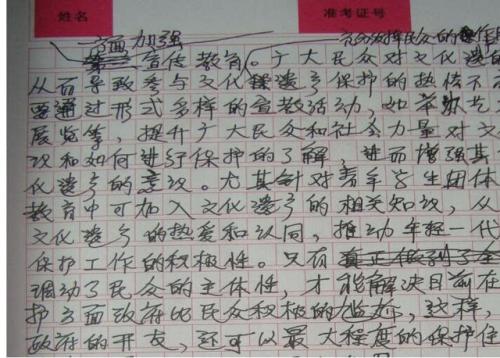 姓名 准考证号
方面加强 充分发挥民众的作用
宣传教育。广大民众对文化遗
从而导致参与文化遗产保护的热情不
要通过形式多样的宣教活动,如举办艺
展览等,提升广大民众和社会力量对文
识和如何进行保护的了解,进而增强其
化遗产的意识。尤其针对青年学生团体
教育中可加入文化遗产的相关知识,从
文化遗产的热爱和认同,推动年轻一代
保护工作的积极性。只有真正做到了全
调动了民众的主体性,才能解决目前在
护方面政府比民众积极的尴尬,这样,
政府的开支,还可以最大程度的保护住